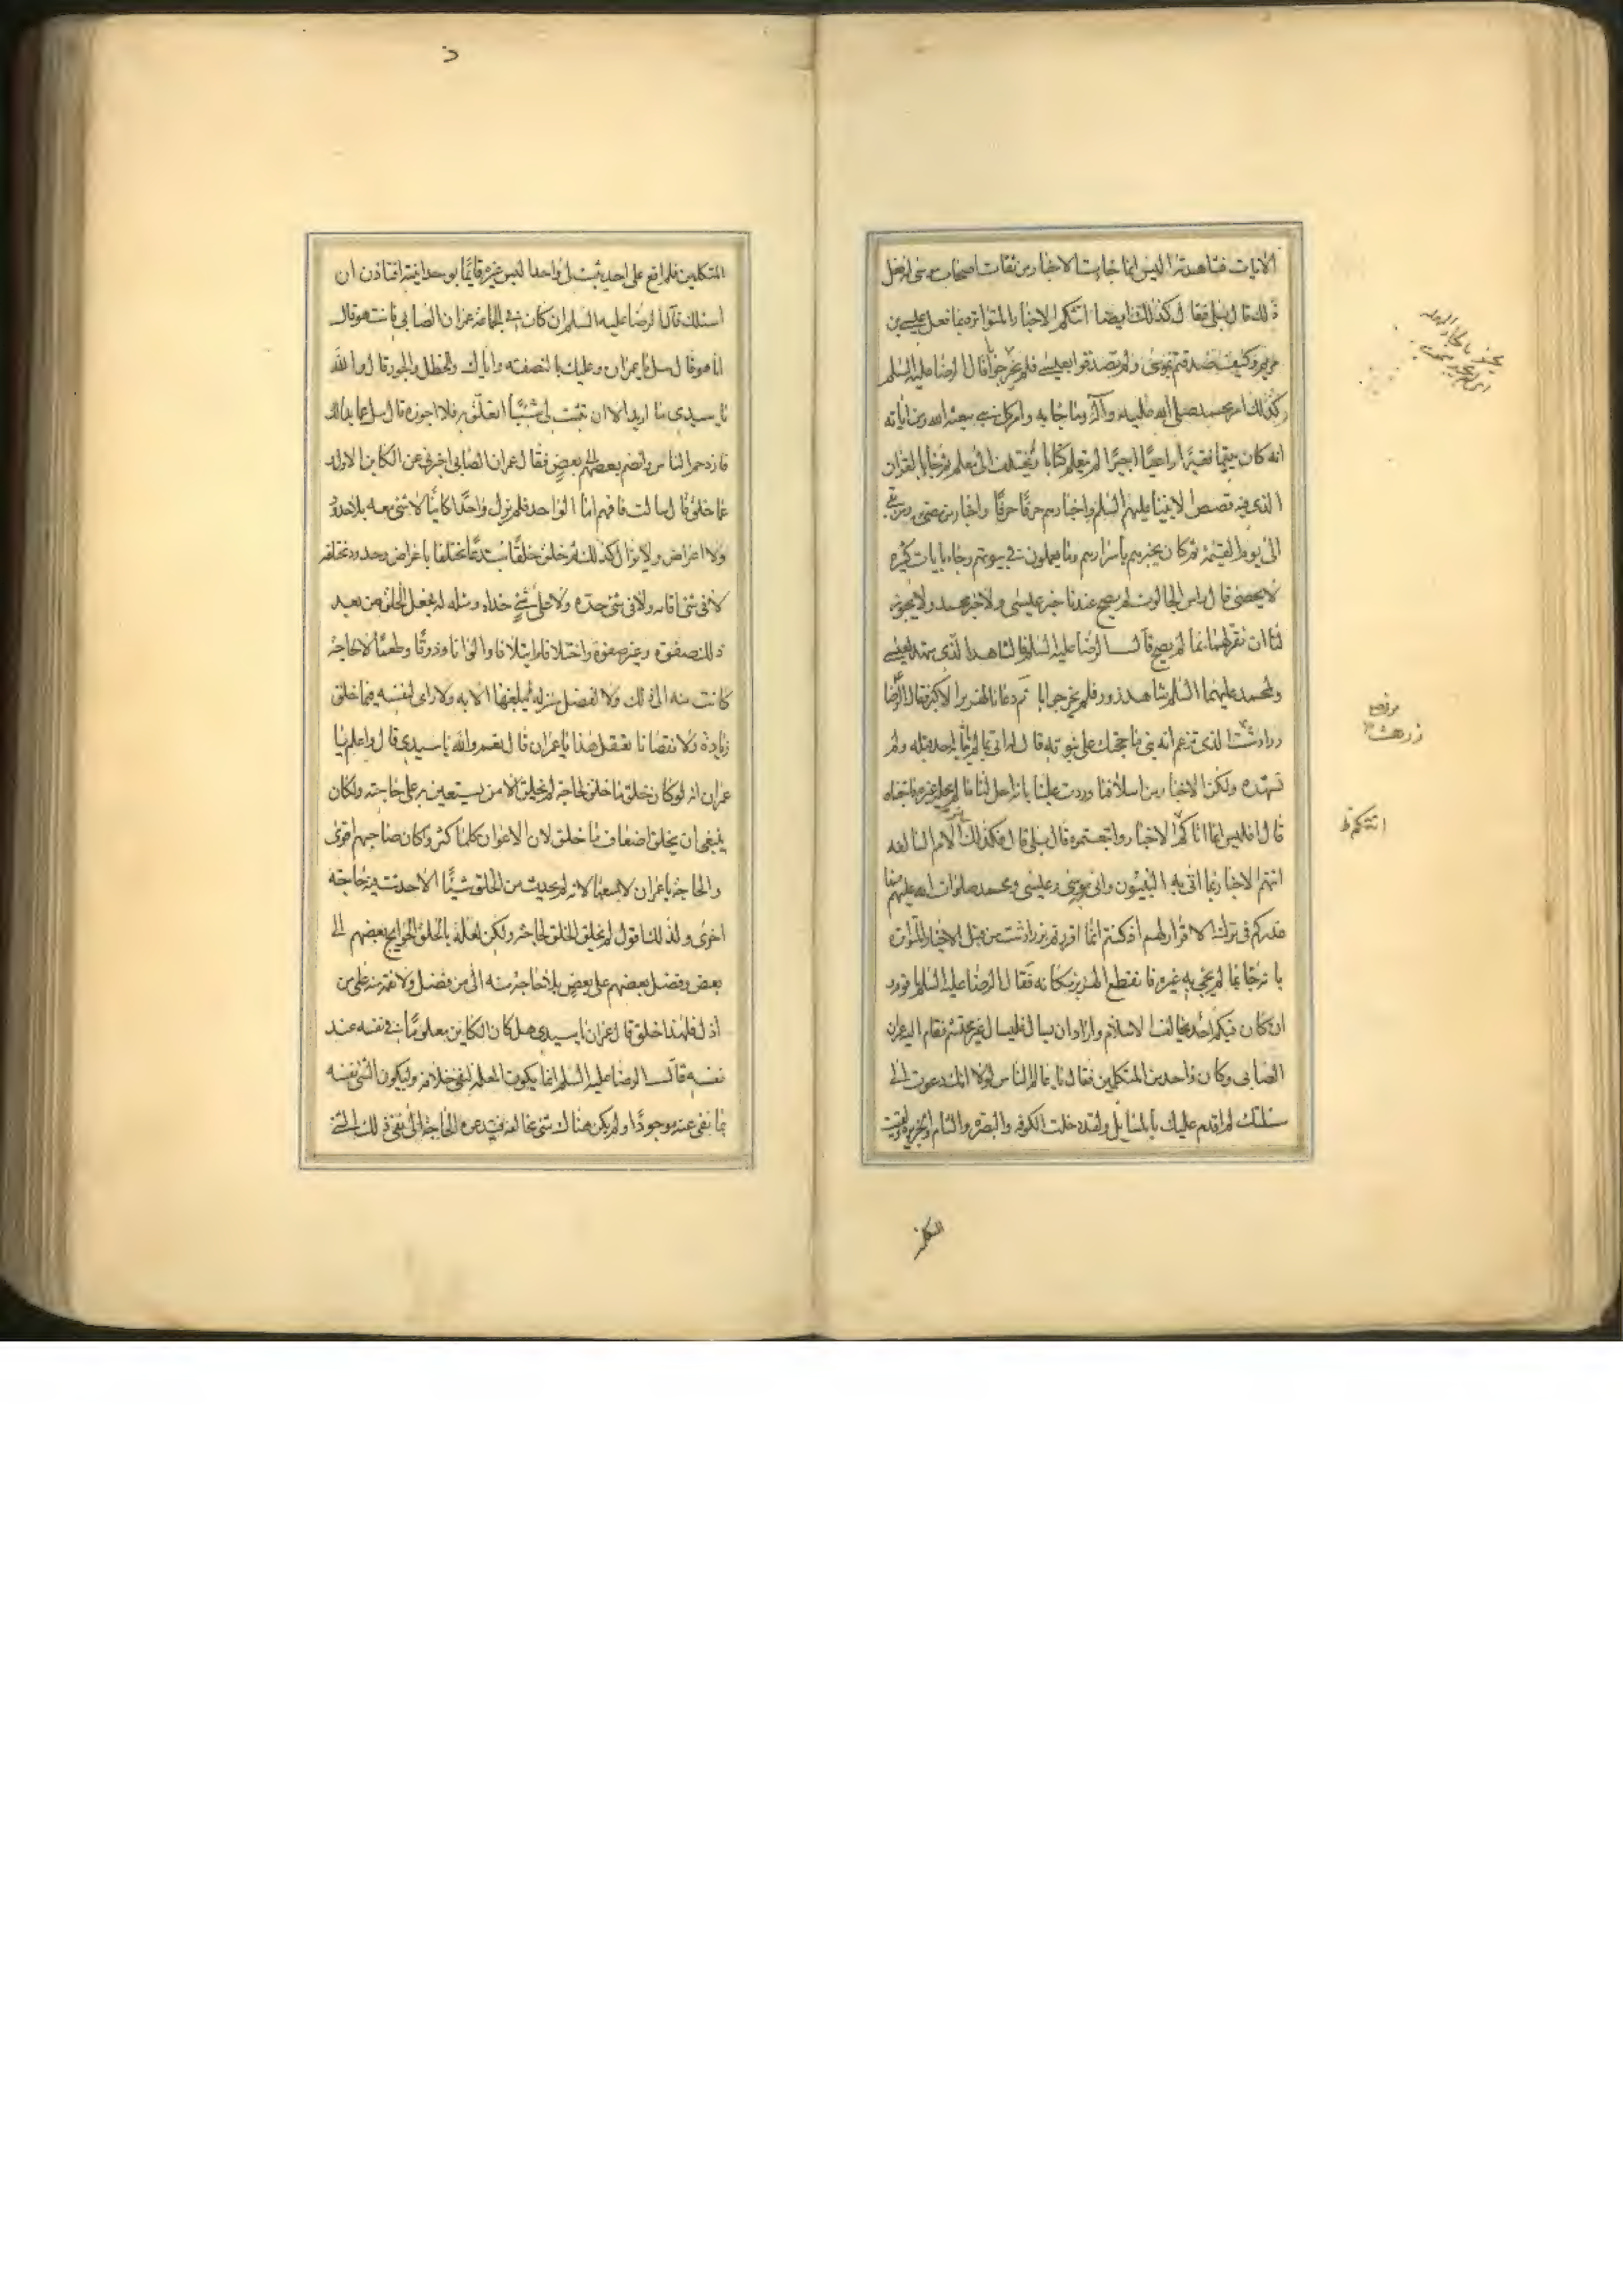 الايات فشاهدته اليس انما جاءت الاخبار من ثقات اصحاب موسى انه فعل
ذلك قال بلى فقال كذلك ايضا اتتكم الاخبار المتواترة بما فعل عيسى بن
مريم وكيف صدقتم بموسى ولم تصدقوا بعيسى فلم يحر جوابا قال الرضا عليه السلم
وكذلك امر محمد صلى الله عليه وآله وما جاء به وامر كل نبي بعثه الله ومن اياته
انه كان يتيما فقيرا راعيا اجيرا لم يتعلم كتابا ولم يختلف الى معلم ثم جاء بالقران
الذي فيه قصص الانبياء عليهم السلم واخبارهم حرفا حرفا واخبار من مضى ومن بقي
الى يوم القيمة ثم كان يخبرهم باسرارهم وما يعملون في بيوتهم وجاء بايات كثيرة
لا يحصى قال راس الجالوت لم يصح عندنا خبر عيسى ولا خبر محمد ولا يجوز
لنا ان نقر لهما بما لم يصح قال الرضا عليه السلم فالشاهد الذي شهد لعيسى
ولمحمد عليهما السلم شاهد زور فلم يحر جوابا ثم دعا بالهربذ الاكبر فقال الرضا
زرادشت الذي تزعم انه نبي ما حجتك على نبوته قال انه اتى بما لم ياتنا به احد قبله ولم
نشهده ولكن الاخبار من اسلافنا وردت علينا بانه احل لنا ما لم يحله غيره فاتبعناه
قال افليس انما اتاكم الاخبار واتبعتموه قال بلى قال فكذلك الامم السالفة
اتتهم الاخبار بما اتى به النبيون واتى به موسى وعيسى ومحمد صلوات الله عليهم فما
عذركم في ترك الاقرار لهم اذ كنتم انما اقررتم بزرادشت من قبل الاخبار المتواترة
بانه جاء بما لم يجئ به غيره فانقطع الهربذ مكانه فقال الرضا عليه السلم يا قوم
ان كان فيكم احد يخالف الاسلام واراد ان يسال فليسال غير محتشم فقام اليه عمران
الصابي وكان واحد من المتكلمين فقال يا عالم الناس لولا انك دعوت الى
مسئلتك لم اقدم عليك بالمسايل ولقد دخلت الكوفة والبصرة والشام والجزيرة ولقيت
المتكلمين فلم اقع على احد يثبت لي واحدا ليس غيره قايما بوحدانيته افتاذن ان
اسئلك قال الرضا عليه السلم ان كان في الجماعة عمران الصابي فانت هو قال
انا هو قال سل يا عمران وعليك بالنصفة واياك والخطل والجور قال والله
يا سيدي ما اريد الا ان تثبت لي شيئا اتعلق به فلا اجوزه قال سل عما بدا لك
فازدحم الناس وانضم بعضهم الى بعض فقال عمران الصابي اخبرني عن الكاين الاول
عما خلق قال سالت فافهم اما الواحد فلم يزل واحدا كاينا لا شئ معه بلا حدود
ولا اعراض ولا يزال كذلك ثم خلق خلقا مبتدعا مختلفا باعراض وحدود مختلفة
لا في شئ اقامه ولا في شئ حده ولا على شئ حذاه ومثله له فجعل الخلق من بعد
ذلك صفوة وغير صفوة واختلافا وايتلافا والوانا وذوقا وطعما لا لحاجة
كانت منه الى ذلك ولا لفضل منزلة لم يبلغها الا به ولا راى لنفسه فيما خلق
زيادة ولا نقصانا تعقل هذا يا عمران قال نعم والله يا سيدي قال واعلم يا
عمران انه لو كان خلق ما خلق لحاجة لم يخلق الا من يستعين به على حاجته ولكان
ينبغي ان يخلق اضعاف ما خلق لان الاعوان كلما كثروا كان صاحبهم اقوى
والحاجة يا عمران لا يسعها لانه لم يحدث من الخلق شيئا الا حدثت فيه حاجة
اخرى ولذلك اقول لم يخلق الخلق لحاجة ولكن نقل بالخلق الحوايج بعضهم الى
بعض وفضل بعضهم على بعض بلا حاجة منه الى من فضل ولا نقمة منه على من
اذل فلهذا خلق قال عمران يا سيدي هل كان الكاين معلوما في نفسه عند
نفسه قال الرضا عليه السلم انما يكون المعلمة لنفي خلافه وليكون الشئ نفسه
بما نفي عنه موجودا ولم يكن هناك شئ يخالفه فتدعوه الحاجة الى نفي ذلك الشئ